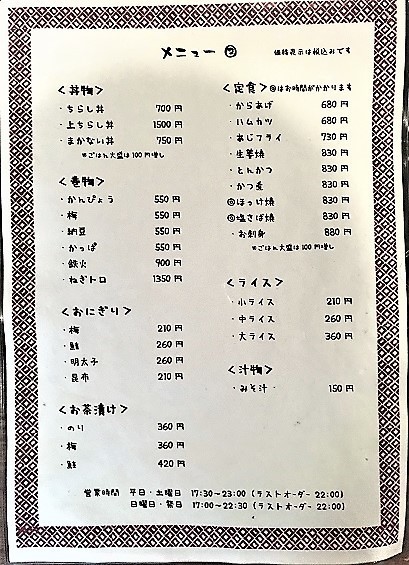 メニュー ②
価格表示は税込みです
<丼物>
・ちらし丼 700円
・上ちらし丼 1500円
・まかない丼 750円
※ごはん大盛は100円増し
<巻物>
・かんぴょう 550円
・梅 550円
・納豆 550円
・かっぱ 550円
・鉄火 900円
・ねぎトロ 1350円
<おにぎり>
・梅 210円
・鮭 260円
・明太子 260円
・昆布 210円
<お茶漬け>
・のり 360円
・梅 360円
・鮭 420円
<定食> ◎はお時間がかかります
・からあげ 680円
・ハムカツ 680円
・あじフライ 730円
・生姜焼 830円
・とんかつ 830円
・かつ煮 830円
◎ほっけ焼 830円
◎塩さば焼 830円
・お刺身 880円
※ごはん大盛は100円増し
<ライス>
・小ライス 210円
・中ライス 260円
・大ライス 360円
<汁物>
・みそ汁 150円
営業時間 平日・土曜日 17:30~23:00 (ラストオーダー 22:00)
日曜日・祭日 17:00~22:30 (ラストオーダー 22:00)